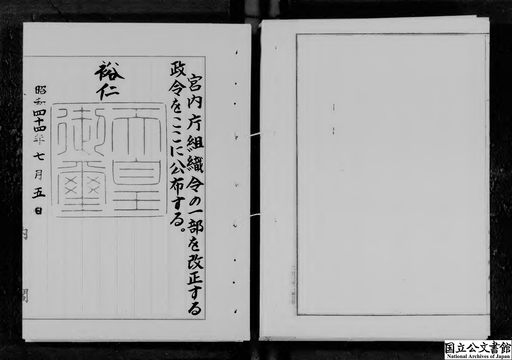 宮内庁組織令の一部を改正する
政令をここに公布する。
裕仁
天皇
御璽
昭和四十四年七月五日
内閣
国立公文書館
National Archives of Japan